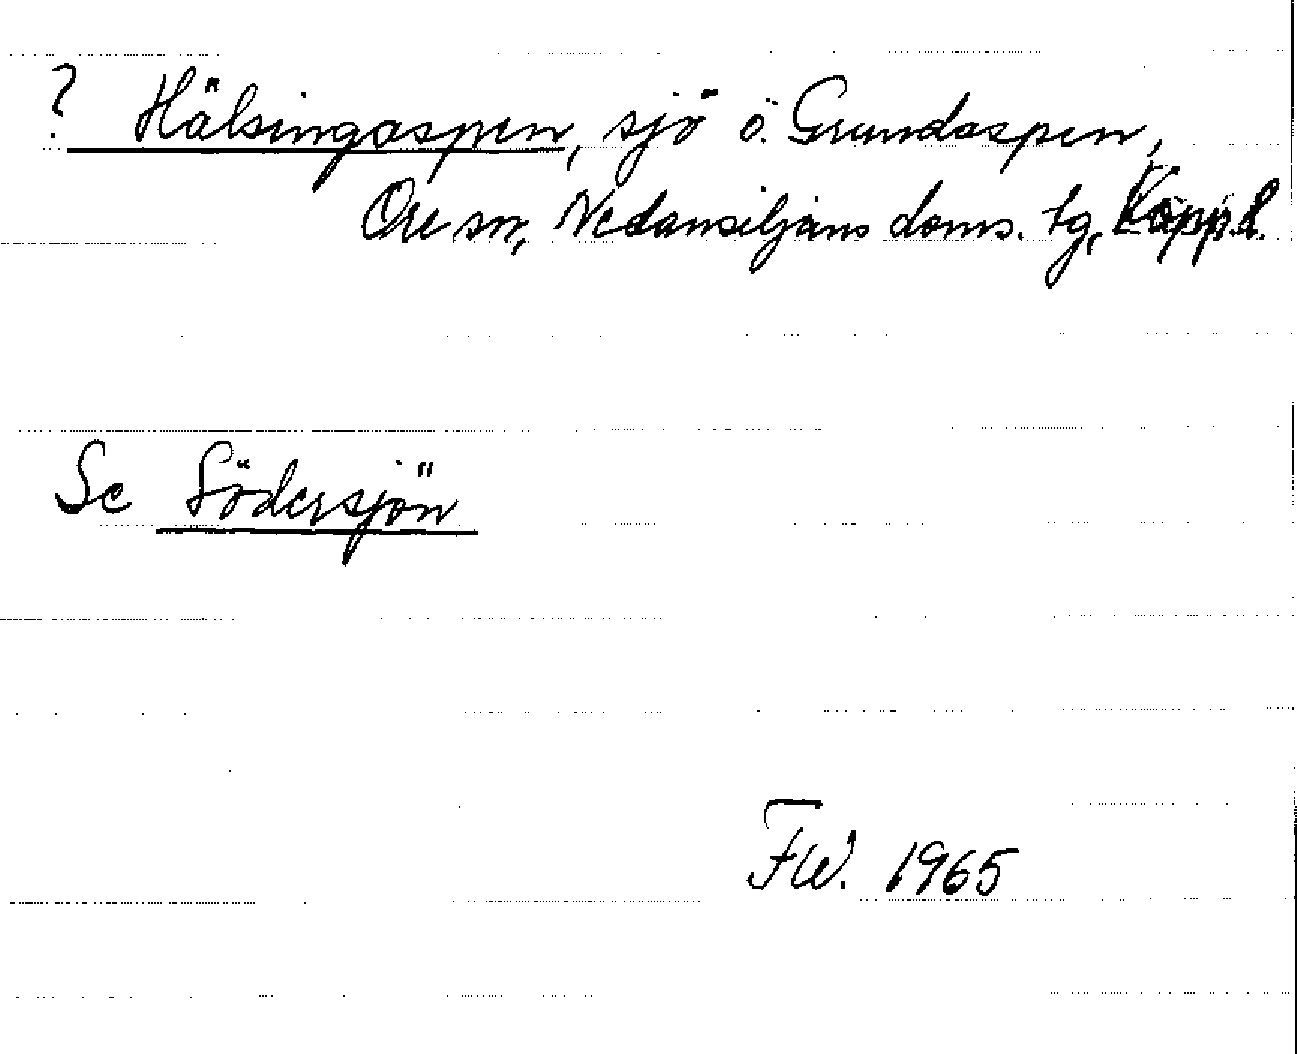 ? Hälsingaspen, sjö ö. Grundaspen,
Ore sn, Nedansiljans doms. tg, Kopp. l.
Se Södersjön
FW. 1965